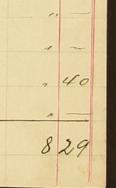 " —
" —
" 40
" —
8 29